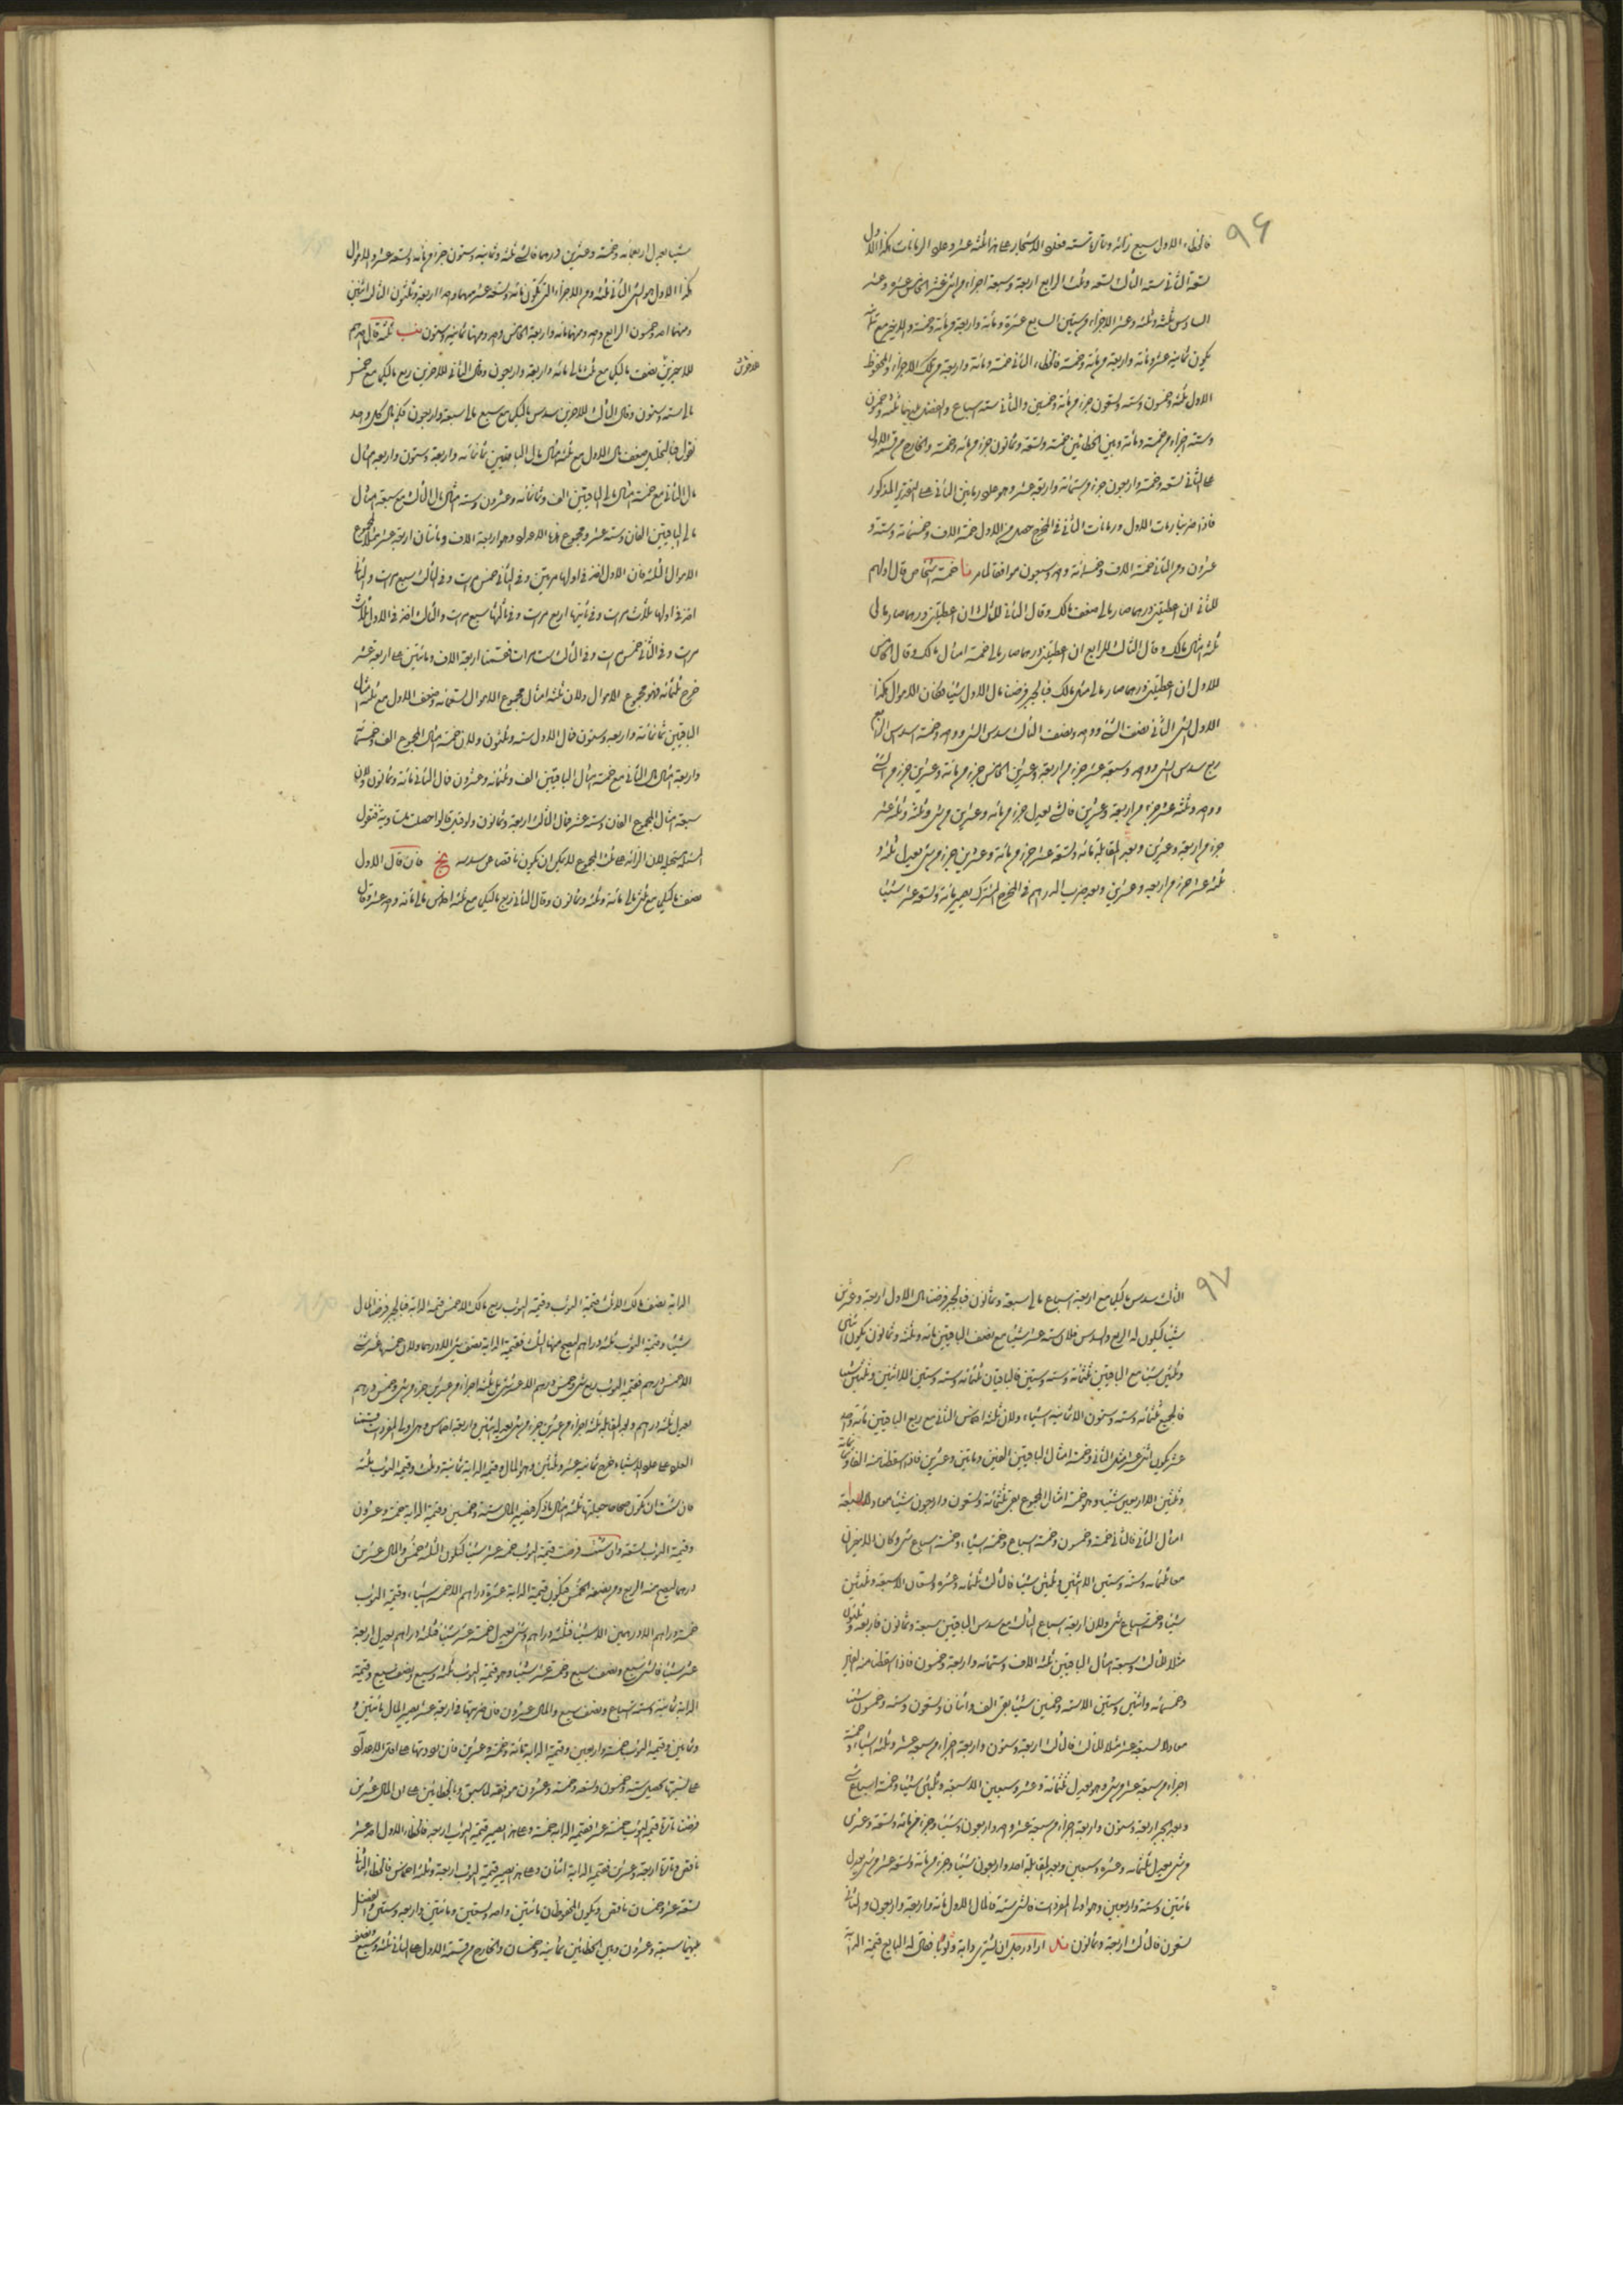 ٩٦
فالخطاء الاول سبع زائد وبتاسه ستة فعلى الاشجار على هذا ثلثة عشر وعلى الرمانات هكذا الاول
تسعة الثانى ستة الثالث تسعة وثلث الرابع اربعة وسبعة اجزاء من اثنى عشر الخامس عشرة وعشر
السادس ثلثة وثلثة وعشر الاجزاء من ستين السابع عشرة ومائة واربعة من مائة وخمسة والاخير مع
يكون ثمانية عشر ومائة واربعة من مائة وخمسة فالخطاء الثانى خمسة ومائة واربعة من تلك الاجزاء والمحفوظ
الاول ثلثة وخمسون وستة وتسعون جزء من مائة وخمسين والثانى ستة اسباع والفضل بينهما ثلثة وخمسون
وستة اجزاء من خمسة ومائة وبين الخطائين خمسة وتسعة وثمانون جزء من مائة وخمسة والخارج من قسمة الاول
على الثانى تسعة وخمسة واربعون جزء من ستمائة واربعة عشر وهو على رمانتين الثانى على التقدير المذكور
فاذا ضربنا رمات الاول ورمانات الثانى فى المخرج حصل من الاول خمسة الاف وخمسمائة وستة و
عشرون ومن الثانى خمسة الاف وخمسمائة واحد وسبعون موافقا لما مر نا خمسة اشخاص قال اولهم
للثانى ان اعطيتنى درهما صار مالى ضعف مالك وقال الثانى للثالث ان اعطيتنى درهما صار مالى
ثلثة امثال مالك وقال الثالث للرابع ان اعطيتنى درهما صار مالى خمسة امثال مالك وقال الخامس
للاول ان اعطيتنى درهما صار مالى مثل مالك فبالجبر فرضنا مال الاول شيئا فكان الاموال هكذا
الاول الشئ الثانى نصف الشئ وواحد ونصف الثالث سدس الشئ وواحد وخمسة اسداس الرابع
ربع سدس الشئ وواحد وسبعة عشر جزء من اربعة وعشرين الخامس جزء من مائة وعشرين جزء من الشئ
وواحد وثلثة عشر جزء من اربعة وعشرين فالشئ يعدل جزء من مائة وعشرين من شئ وثلثة وثلثة عشر
جزء من اربعة وعشرين وبعد المقابلة مائة وتسعة عشر جزء من مائة وعشرين جزء من شئ يعدل ثلثة و
ثلثة عشر جزء من اربعة وعشرين وبعد ضرب الدراهم فى المخرج المشترك يصير مائة وتسعة عشر شيئا
شيئا يعدل اربعمائة وخمسة وعشرين درهما فالشئ ثلثة وثمانية وستون جزء من مائة وتسعة عشر والاموال
هكذا الاول هو الشئ الثانى ثلثة ومن الاجزاء التى تكون مائة وتسعة عشر سهما واحد اربعة وثلثون الثالث اثنين
ومنها احد وخمسون الرابع واحد ومنها مائة واربعة الخامس واحد ومنها ثمانية وستون نب ثلثة قال احدهم
للاخرين نصف ماليكما مع ثلث مالى مائة واربعة واربعون وقال الثانى للاخرين ربع ماليكما مع خمس
مالى ستة وستون وقال الثالث للاخرين سدس ماليكما مع سبع مالى سبعة واربعون فكم مال كل واحد
نقول فبالتحليل ضعف مال الاول مع ثلثة امثال مال الباقيين ثمانمائة واربعة وستون واربعة امثال
مال الثانى مع خمسة امثال مال الباقيين الف وثلثمائة وعشرون وستة امثال مال الثالث مع سبعة امثال
مال الباقيين الفان وستة عشر ومجموع هذه الاعداد وهو اربعة الاف ومائتان اربعة عشر مثلا لمجموع
الاموال الثلثة فان الاول اخذ فى اولها مرتين وفى الثانى خمس مرات وفى الثالث سبع مرات والثانى
اخذ فى اولها ثلاث مرات وفى ثانيها اربع مرات وفى ثالثها سبع مرات والثالث اخذ فى الاول ثلاث
مرات وفى الثانى خمس مرات وفى الثالث ست مرات فقسمنا اربعة الاف ومائتين على اربعة عشر
خرج ثلثمائة فهو مجموع الاموال ولان ثلثة امثال مجموع الاموال تسعمائة وضعف الاول مع ثلثة امثال
الباقيين ثمانمائة واربعة وستون فمال الاول ستة وثلثون ولان خمسة امثال المجموع الف وخمسمائة
واربعة امثال الثانى مع خمسة امثال الباقيين الف وثلثمائة وعشرون فمال الثانى مائة وثمانون ولان
سبعة امثال المجموع الفان وستة عشر فمال الثالث اربعة وثمانون ولو قيل قالوا حصلت متساوية فنقول
المسئلة مستحيلة لان الزائد على ثلث المجموع لا يمكن ان يكون ناقصا عن سدسه نج فان قال الاول
نصف ماليكما مع ثلثى مالى مائة وثلثة وثمانون وقال الثانى ربع ماليكما مع ثلثة اخماس مالى مائة واحد عشر وقال
٩٧
الثالث سدس ماليكما مع اربعة اسباع مالى سبعة وثمانون فبالجبر فرضنا مال الاول اربعة وعشرين
شيئا ليكون له الربع والسدس فلان ستة عشر شيئا مع نصف الباقيين مائة وثلثة وثمانون يكون اثنى
وثلثين شيئا مع الباقيين ثلثمائة وستة وستين فالباقيان ثلثمائة وستة وستين الا اثنين وثلثين شيئا
فالجميع ثلثمائة وستة وستون الا ثمانية اشياء ولان ثلثة اخماس الثانى مع ربع الباقيين مائة واحد
عشر يكون اثنى عشر مثل الثانى وخمسة امثال الباقيين الفين ومائتين وعشرين فاذا اسقطنا منه الفا وثمانمائة
وثلثين الا اربعين شيئا وهو خمسة امثال المجموع بقى ثلثمائة وتسعون واربعون شيئا معادلا لسبعة
امثال الثانى فالثانى خمسة وخمسون وخمسة اسباع وخمسة اشياء وخمسة اسباع شئ وكان الاخيران
معا ثلثمائة وستة وستين الا اثنين وثلثين شيئا فالثالث ثلثمائة وعشرة وسبعان الا سبعة وثلثين
شيئا وخمسة اسباع شئ ولان اربعة اسباع الثالث مع سدس الباقيين سبعة وثمانون فاربعة وثلثون
مثلا للثالث وسبعة امثال الباقيين ثلثة الاف وستمائة واربعة وخمسون فاذا اسقطنا منه الفين
وخمسمائة واثنين وستين الا ستة وخمسين شيئا بقى الف واثنان وتسعون وستة وخمسون شيئا
معادلا لسبعة عشر مثلا للثالث فالثالث اربعة وستون واربعة اجزاء من سبعة عشر وثلثة اشياء وخمسة
اجزاء من سبعة عشر من شئ وهو يعدل ثلثمائة وعشرة وسبعين الا سبعة وثلثين شيئا وخمسة اسباع شئ
وبعد الجبر اربعة وستون واربعة اجزاء من سبعة عشر واحد واربعون شيئا وجزء من مائة وتسعة عشر
من شئ يعدل ثلثمائة وعشرة وسبعين وبعد المقابلة احد واربعون شيئا وجزء من مائة وتسعة عشر من شئ يعدل
مائتين وستة واربعين وهو اولى المفردات فالشئ ستة فالمال الاول مائة واربعة واربعون والثانى
تسعون فالثالث اربعة وثمانون ند اراد رجل ان يشترى دابة وثوبا فقال له البايع قيمة الدابة
الدابة نصف مالك الا ثلث قيمة الثوب وقيمة الثوب ربع مالك الا خمس قيمة الدابة فبالجبر فرضنا المال
شيئا وقيمة الثوب ثلثة دراهم ليصح منها الثلث فقيمة الدابة نصف شئ الا درهما ولان خمسها عشر شئ
الا خمس درهم فقيمة الثوب ربع شئ وخمس درهم الا عشر شئ بل ثلثة اجزاء من عشرين جزء من شئ وخمس درهم
يعدل ثلثة دراهم وبعد المقابلة ثلثة اجزاء من عشرين جزء من شئ يعدل اثنين واربعة اخماس وهى اولى المفردات قسمنا
العدد على عدد الاشياء خرج ثمانية عشر وثلثين وهو المال وقيمة الدابة ثمانية وثلث وقيمة الثوب ثلثة
فان شئت ان تكون صحاحا جعلتها ثلثة امثال ما ذكر فيصير المال ستة وخمسين وقيمة الدابة خمسة وعشرون
وقيمة الثوب تسعة وان شئت فرضت قيمة الثوب خمسة عشر شيئا ليكون الثلث خمس والمال عشرين
درهما ليصح منه الربع ومن نصفه الخمس فيكون قيمة الدابة عشرة دراهم الا خمسة اشياء وقيمة الثوب
خمسة دراهم الا درهمين الا شيئا فثلثة دراهم وشئ يعدل خمسة عشر شيئا فثلثة دراهم يعدل اربعة
عشر شيئا فالشئ سبع ونصف سبع وخمسة عشر شيئا وهو قيمة الثوب ثلثة وسبع ونصف سبع وقيمة
الدابة ثمانية وستة اسباع ونصف سبع والمال عشرون فان ضربتها فى اربعة عشر يصير المال مائتين و
وثمانين وقيمة الثوب خمسة واربعين وقيمة الدابة مائة وخمسة وعشرين فان رددتها على اقل الاعداد
على نسبتها تحصل ستة وخمسون وتسعة وخمسة وعشرون موافقة لما سبق وبالخطائين على ان المال عشرين
فرضنا تارة قيمة الثوب خمسة عشر فقيمة الدابة خمسة وعلى هذا يصير قيمة الثوب اربعة فالخطاء الاول احد عشر
ناقص وتارة اربعة وعشرين فقيمة الدابة اثنان وعلى هذا يصير قيمة الثوب اربعة وثلثة اخماس فالخطاء الثانى
تسعة عشر وخمسان ناقص ويكون المحفوظان مائتين واحد وتسعين ومائتين واربعة وستين والفضل
بينهما سبعة وعشرون وبين الخطائين ثمانية وخمسان والخارج من قسمة الاول على الثانى ثلثة وسبع ونصف